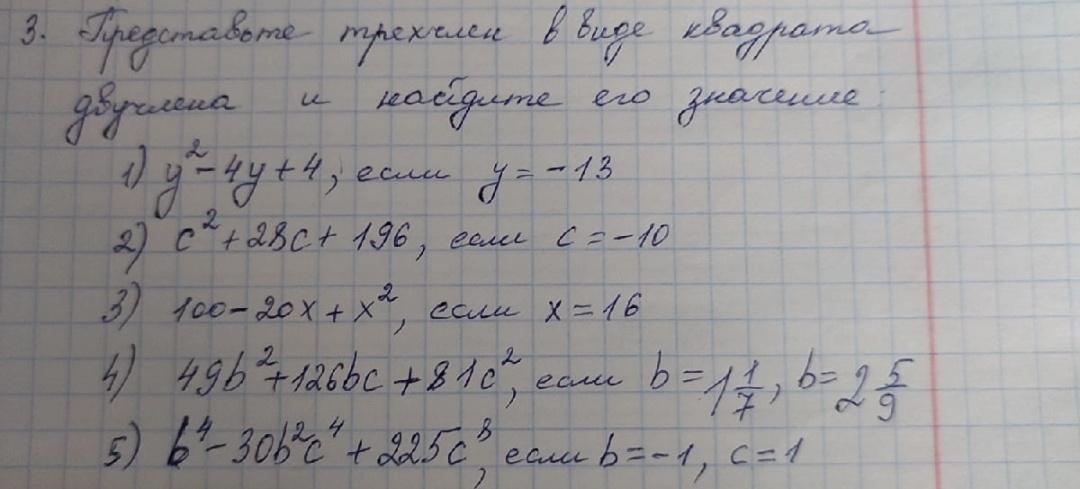 3. Представьте трехчлен в виде квадрата
двучлена и найдите его значение:
1) y² - 4y + 4, если y = -13
2) c² + 28c + 196, если c = -10
3) 100 - 20x + x², если x = 16
4) 49b² + 126bc + 81c², если b = 1 1/7, b = 2 5/9
5) b⁴ - 30b²c⁴ + 225c⁸, если b = -1, c = 1